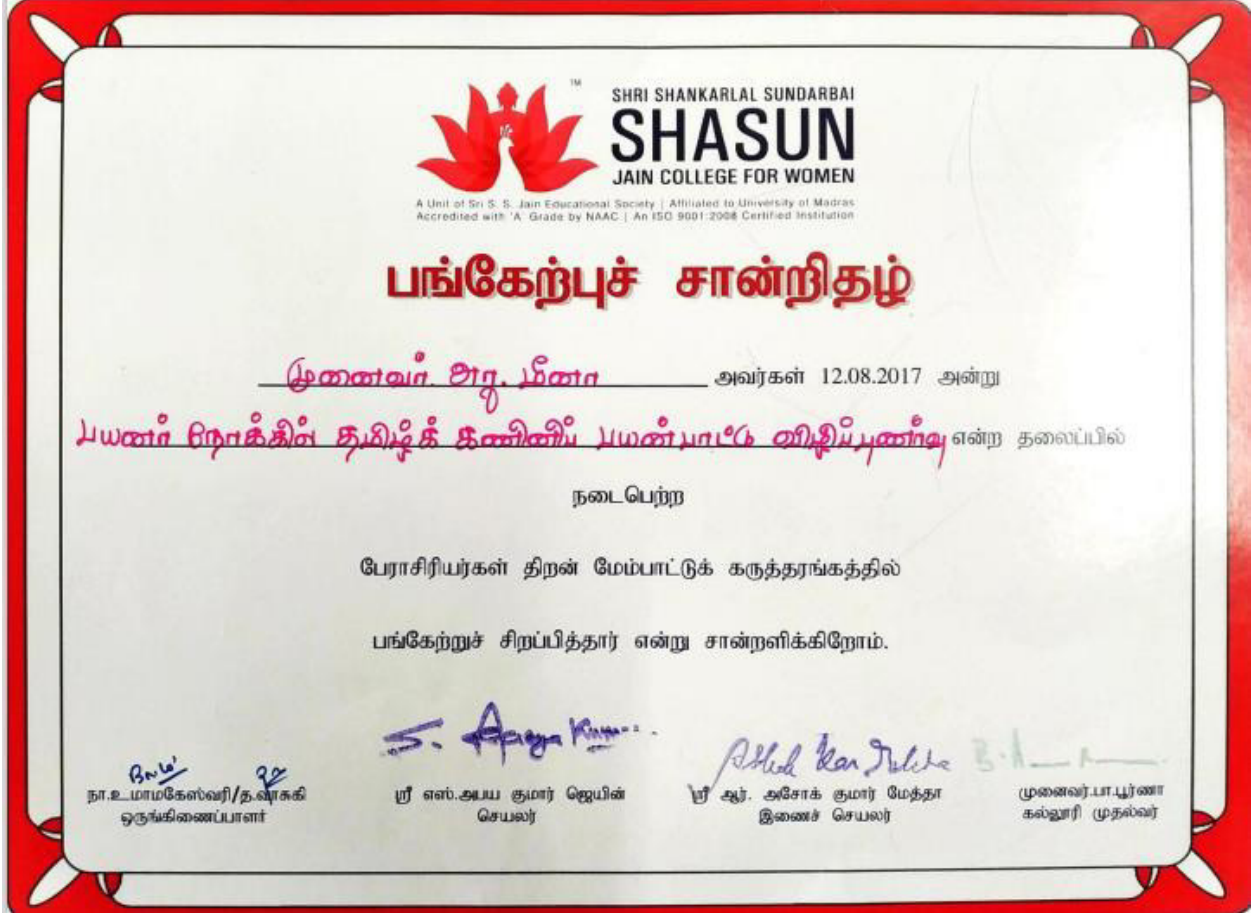 TM
SHRI SHANKARLAL SUNDARBAI
SHASUN
JAIN COLLEGE FOR WOMEN
A Unit of Sri S. S. Jain Educational Society | Affiliated to University of Madras
Accredited with 'A' Grade by NAAC | An ISO 9001:2008 Certified Institution
பங்கேற்புச் சான்றிதழ்
முனைவர். அரு. மீனா அவர்கள் 12.08.2017 அன்று
பயனர் நோக்கில் தமிழ்க் கணினிப் பயன்பாட்டு விழிப்புணர்வு என்ற தலைப்பில்
நடைபெற்ற
பேராசிரியர்கள் திறன் மேம்பாட்டுக் கருத்தரங்கத்தில்
பங்கேற்றுச் சிறப்பித்தார் என்று சான்றளிக்கிறோம்.
S. Abhaya Kumar
Ashok Kumar Mehta
நா.உமாமகேஸ்வரி/த.வாசுகி
ஒருங்கிணைப்பாளர்
ஸ்ரீ எஸ்.அபய குமார் ஜெயின்
செயலர்
ஸ்ரீ ஆர். அசோக் குமார் மேத்தா
இணைச் செயலர்
முனைவர்.பா.பூர்ணா
கல்லூரி முதல்வர்